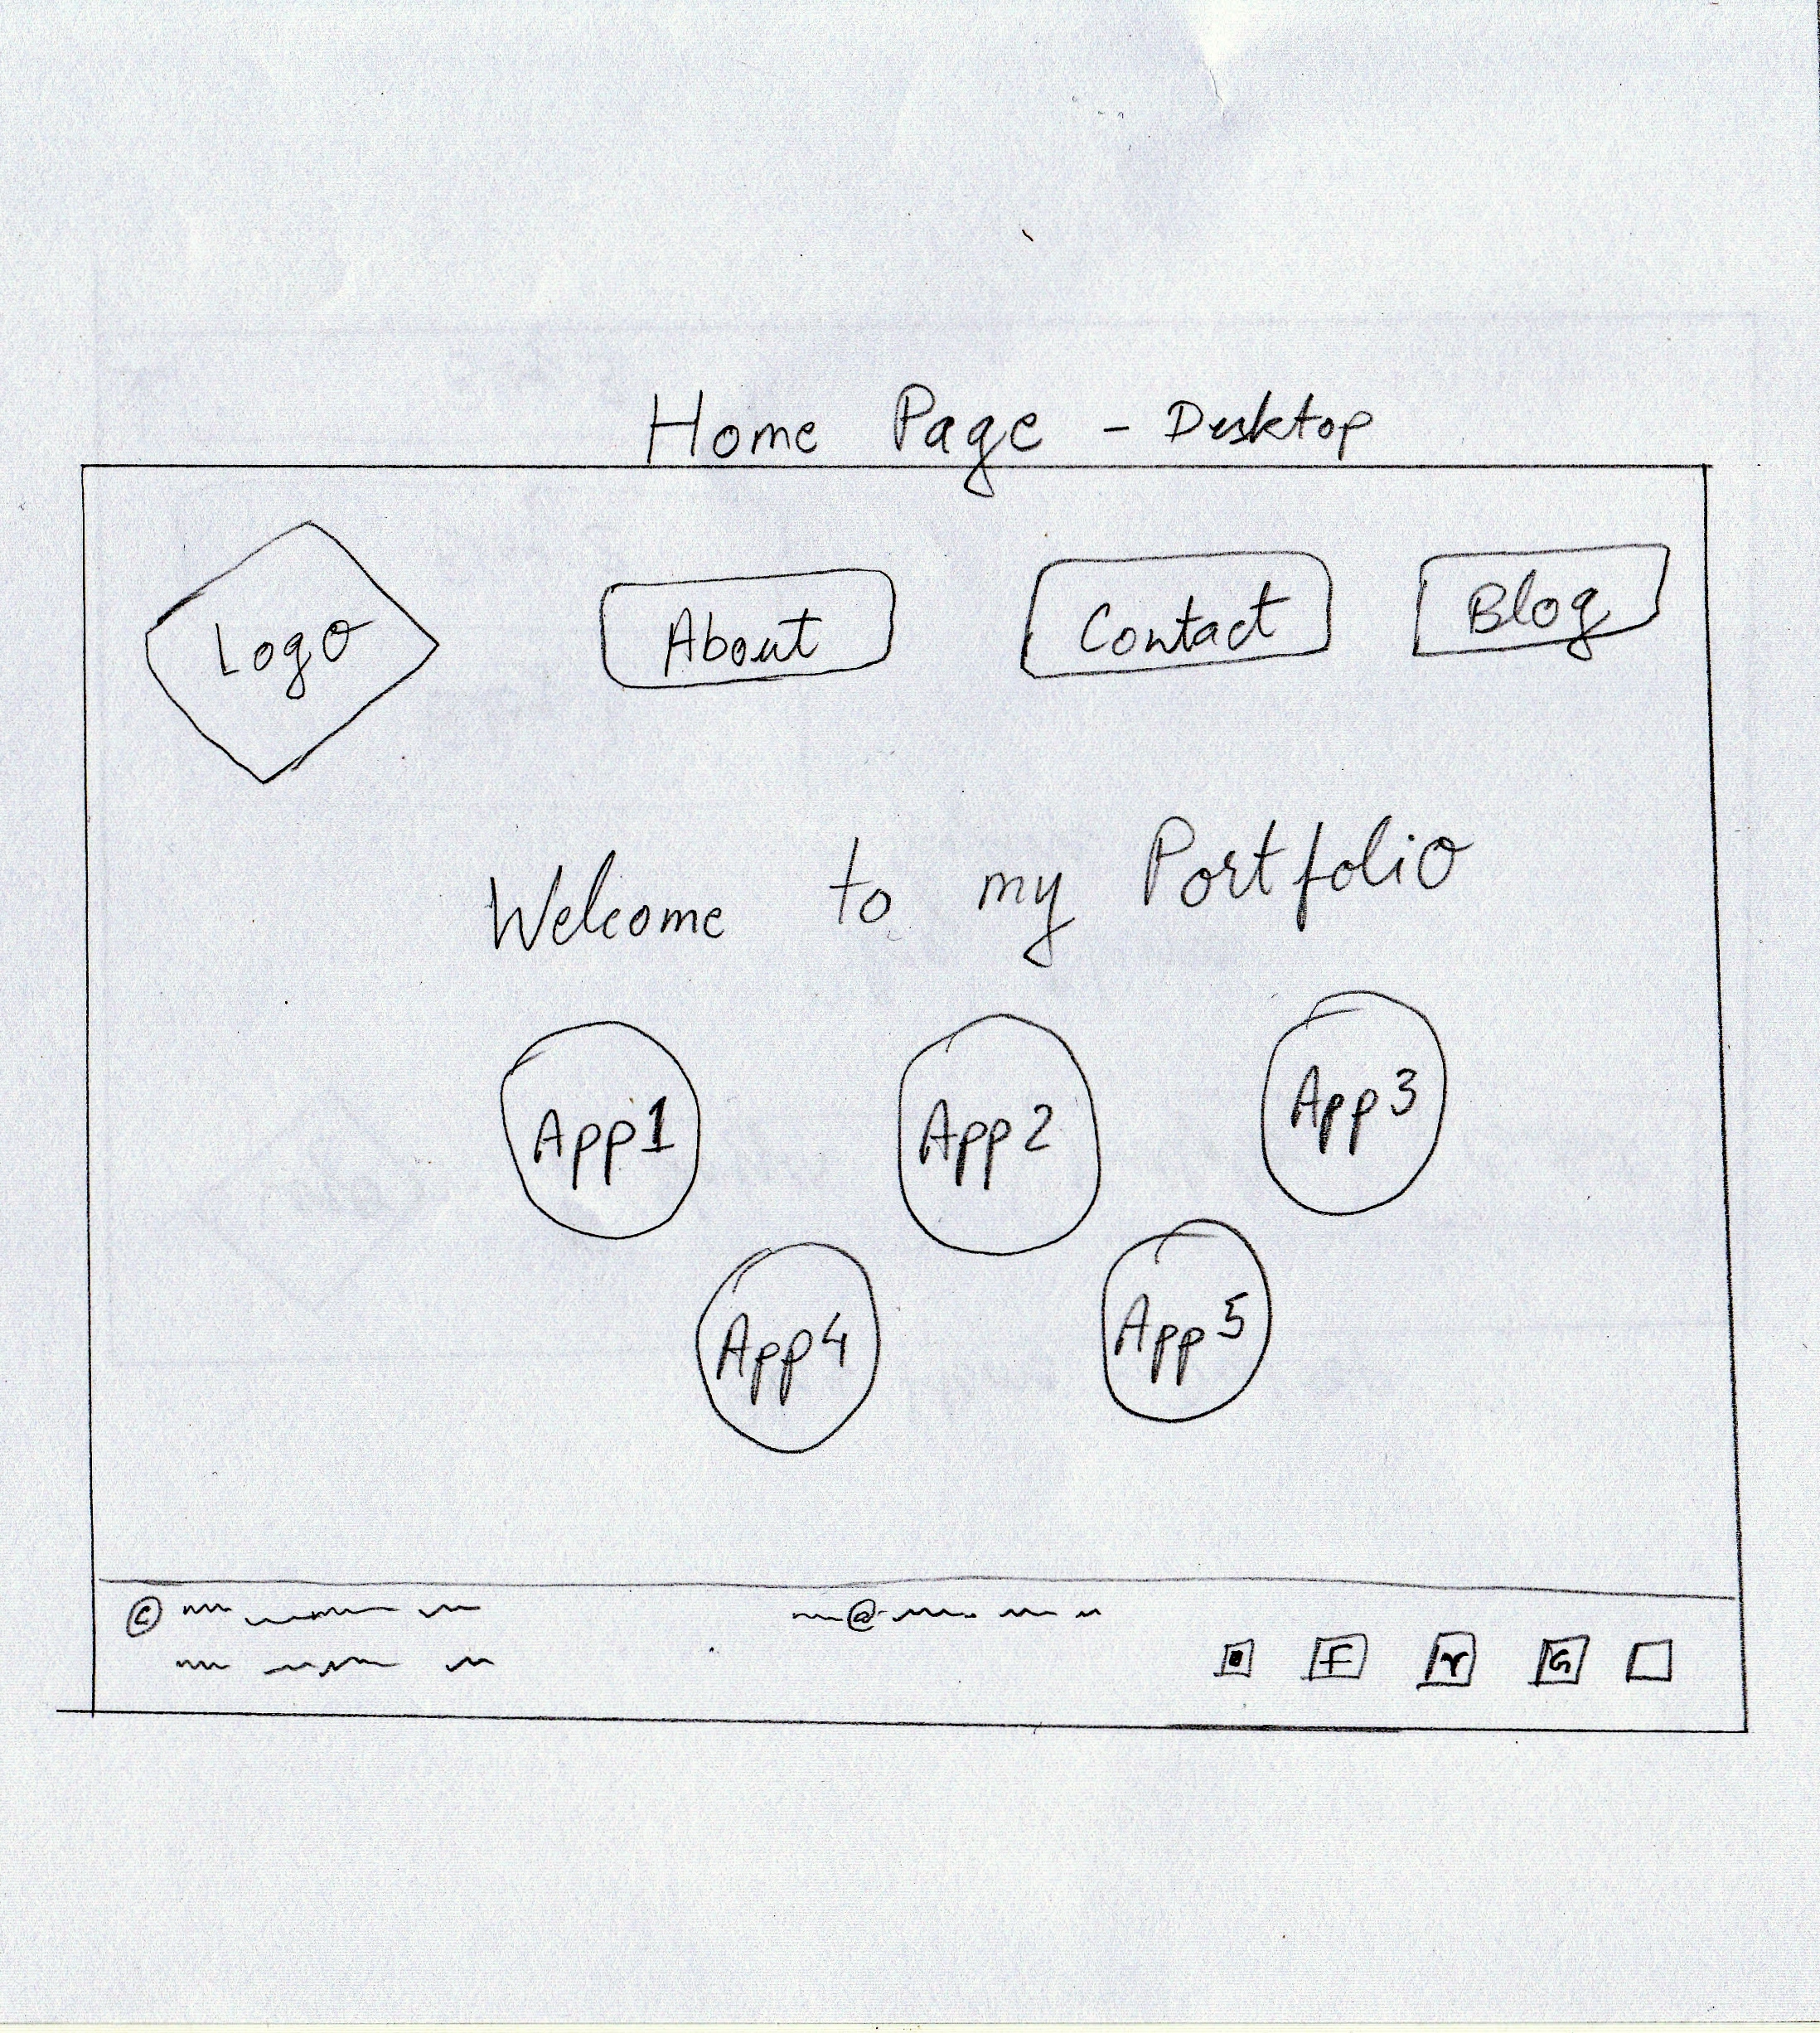 Home Page - Desktop
Logo About Contact Blog
Welcome to my Portfolio
App1 App2 App3
App4 App5
©
@
F G